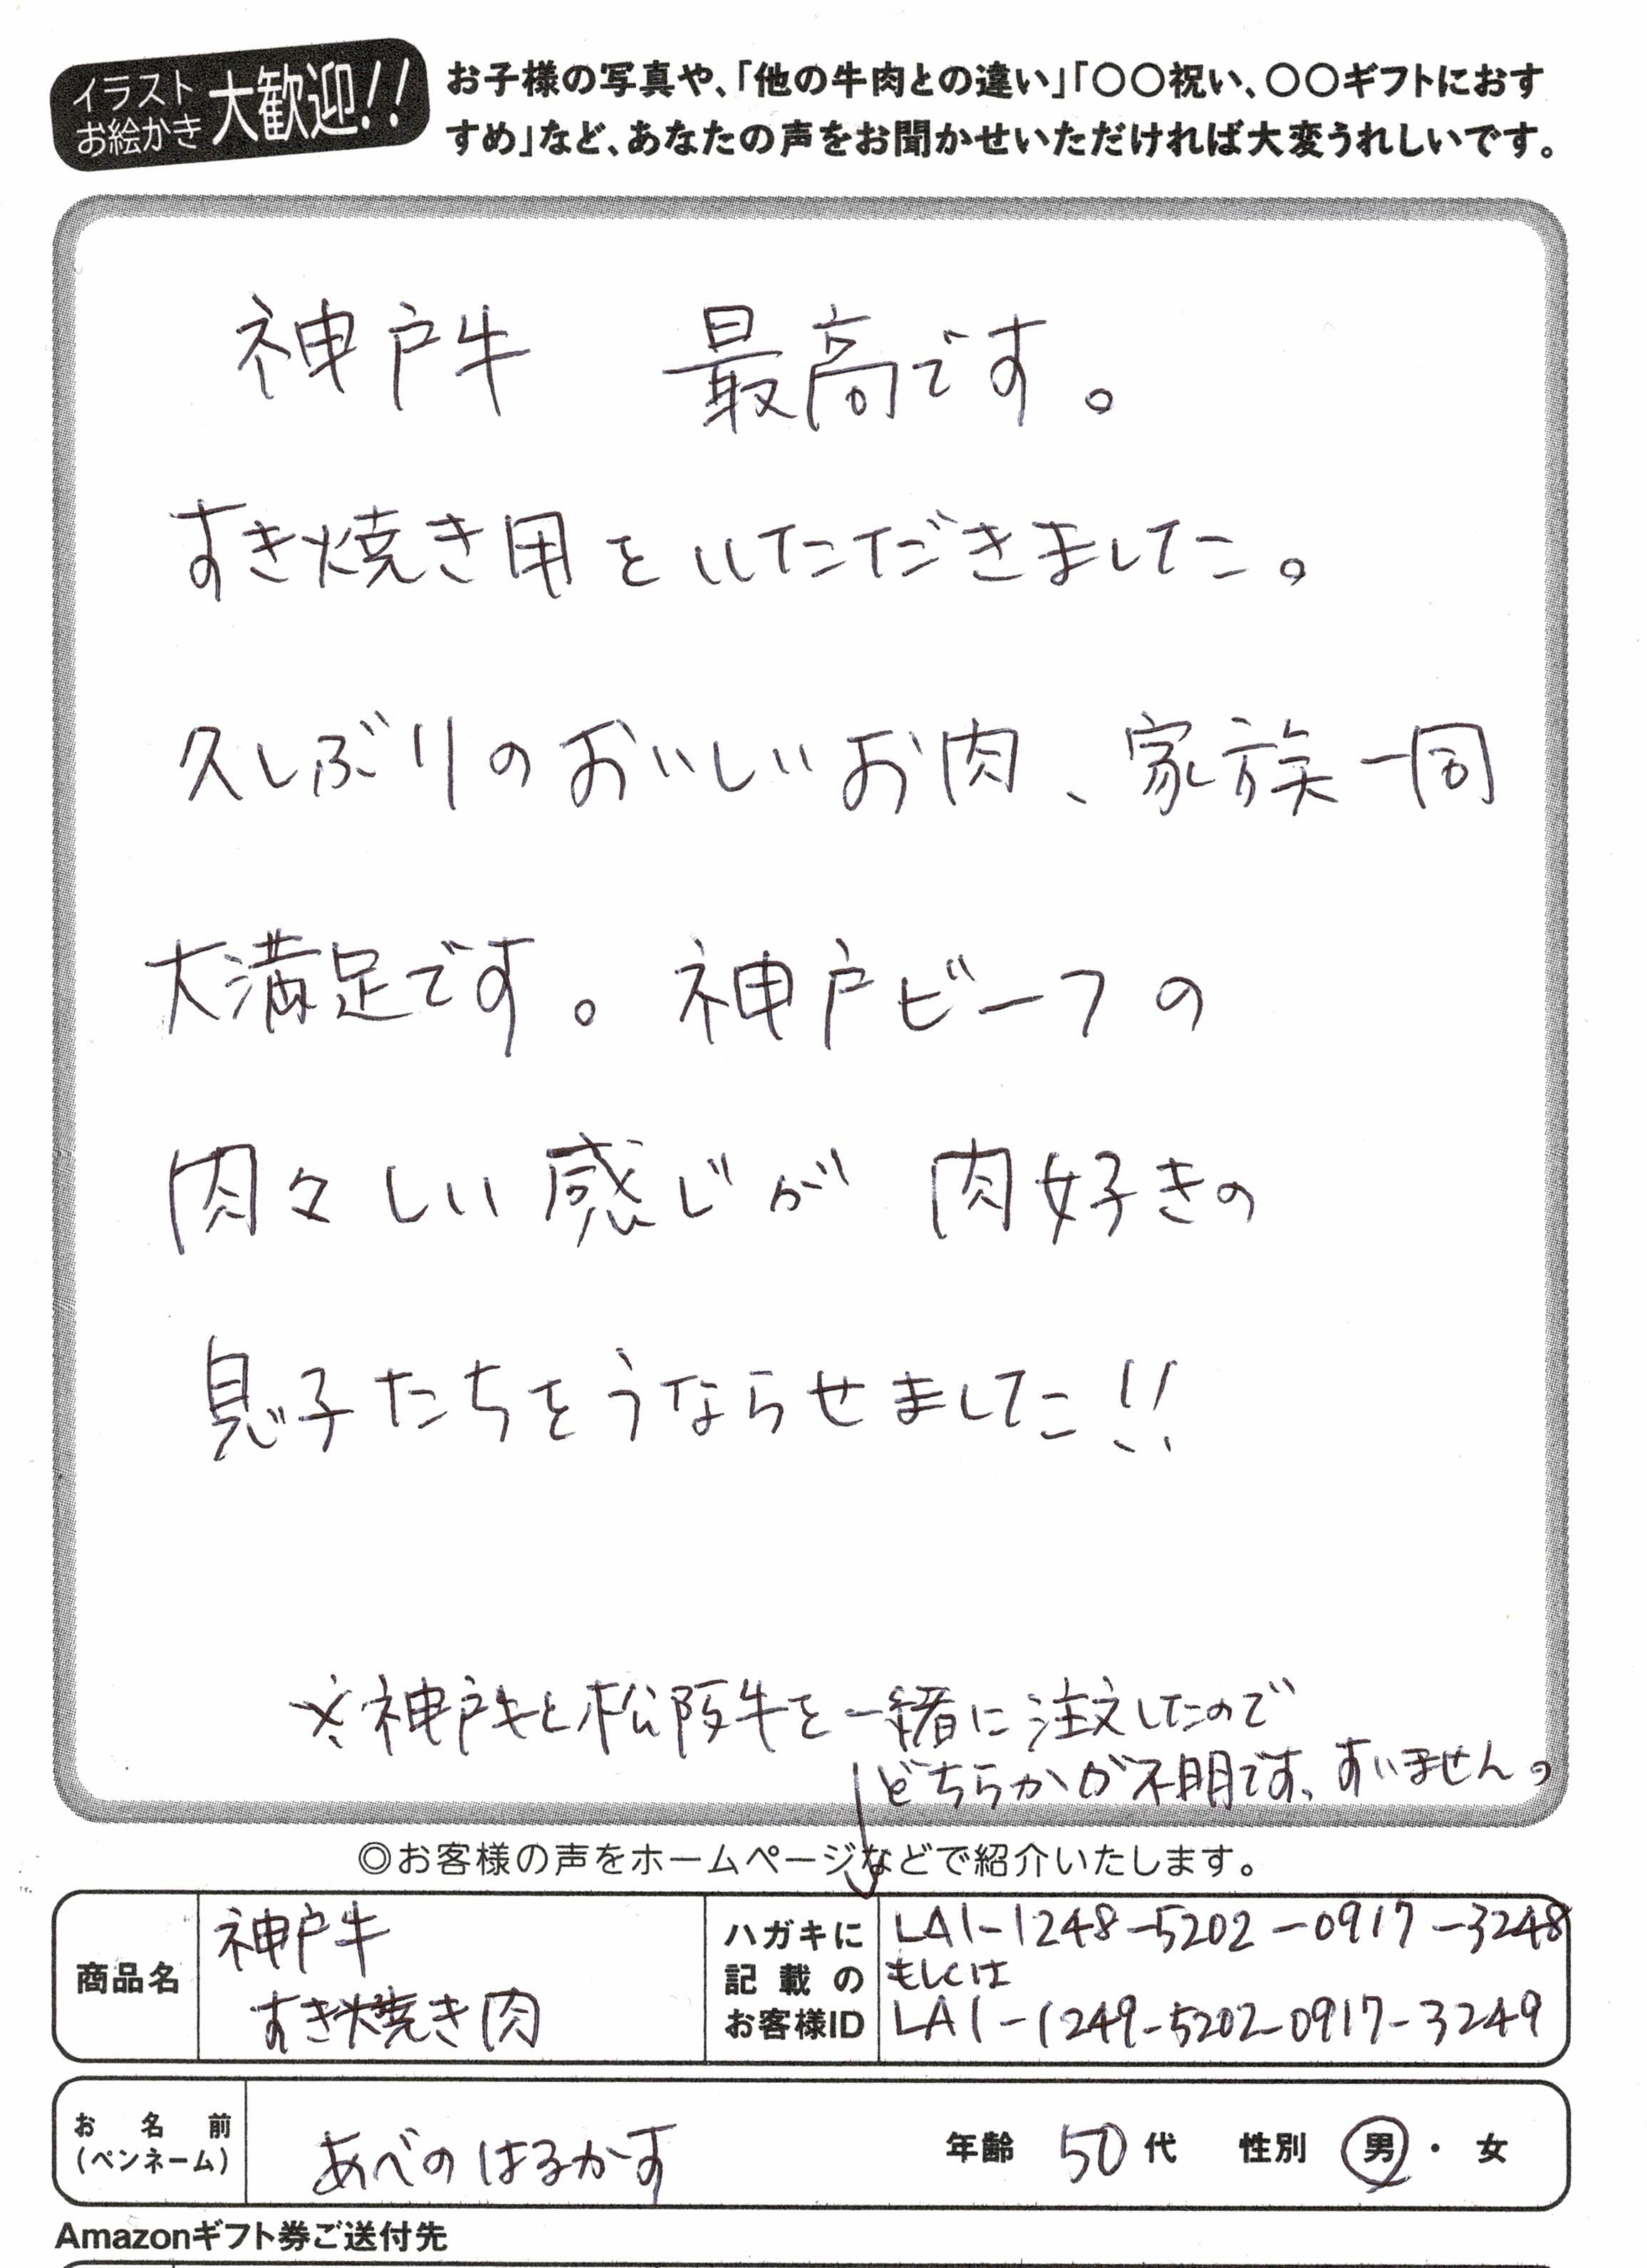 イラスト
お絵かき
大歓迎!!
お子様の写真や、「他の牛肉との違い」「〇〇祝い、〇〇ギフトにおす
すめ」など、あなたの声をお聞かせいただければ大変うれしいです。
神戸牛　最高です。
すき焼き用をいただきました。
久しぶりのおいしいお肉、家族一同
大満足です。神戸ビーフの
肉々しい感じが肉好きの
息子たちをうならせました!!
※神戸牛と松阪牛を一緒に注文したので
どちらかが不明です、すいません。
◎お客様の声をホームページなどで紹介いたします。
商品名
神戸牛
すき焼き肉
ハガキに
記載の
お客様ID
LA1-1248-5202-0917-3248
もしくは
LA1-1249-5202-0917-3249
お名前
(ペンネーム)
あべのはるかす
年齢 50代 性別 男・女
Amazonギフト券ご送付先